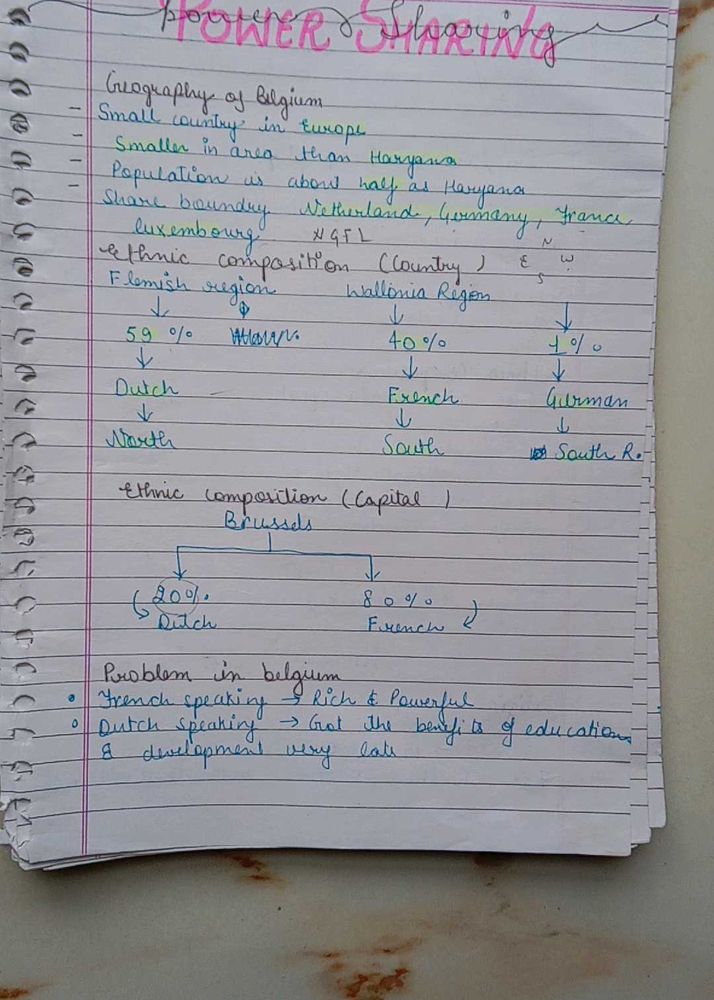 Power Sharing
POWER SHARING
Geography of Belgium
- Small country in Europe
- Smaller in area than Haryana
- Population is about half as Haryana
- Share boundry Netherland, Germany, France,
luxembourg NGFL
N
E W
S
Ethnic composition (Country)
Flemish region Wallonia Region
59 % 40 % 1 %
Dutch French German
North South South R.
Ethnic composition (Capital)
Brussels
20%. 80 %
Dutch French
Problem in belgium
• French speaking → Rich & Powerful
• Dutch speaking → Got the benefits of education
& development very late